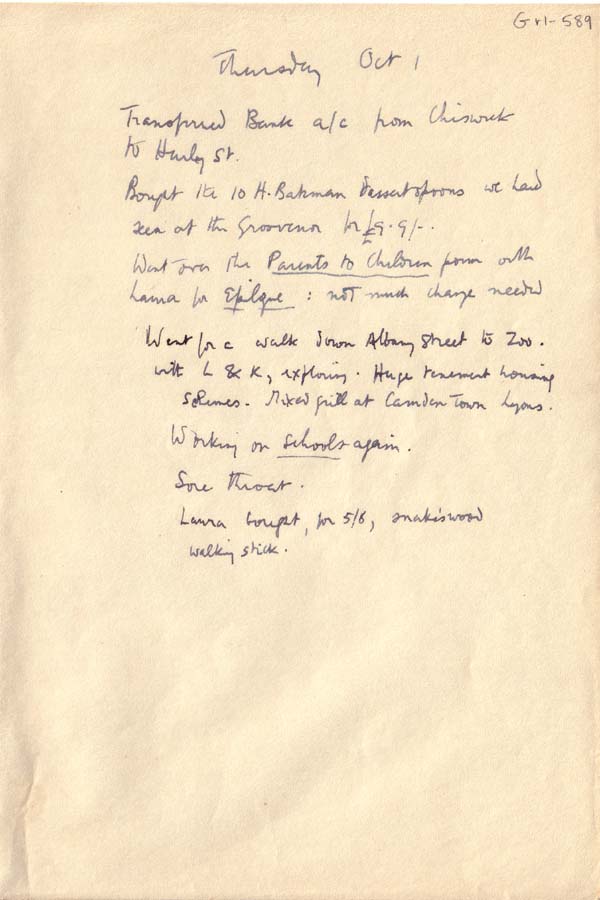 GrI-589
Thursday Oct 1
Transferred Bank a/c from Chiswick
to Harley St.
Bought the 10 H. Bateman dessertspoons we had
seen at the Grosvenor for £9.9/-.
Went over the Parents to Children poem with
Laura for Epilogue : not much change needed
Went for a walk down Albany Street to Zoo.
with L & K, exploring. Huge tenement housing
schemes. Mixed grill at Camden Town Lyons.
Working on Schools again.
Sore throat.
Laura bought, for 5/6, snakeswood
walking stick.